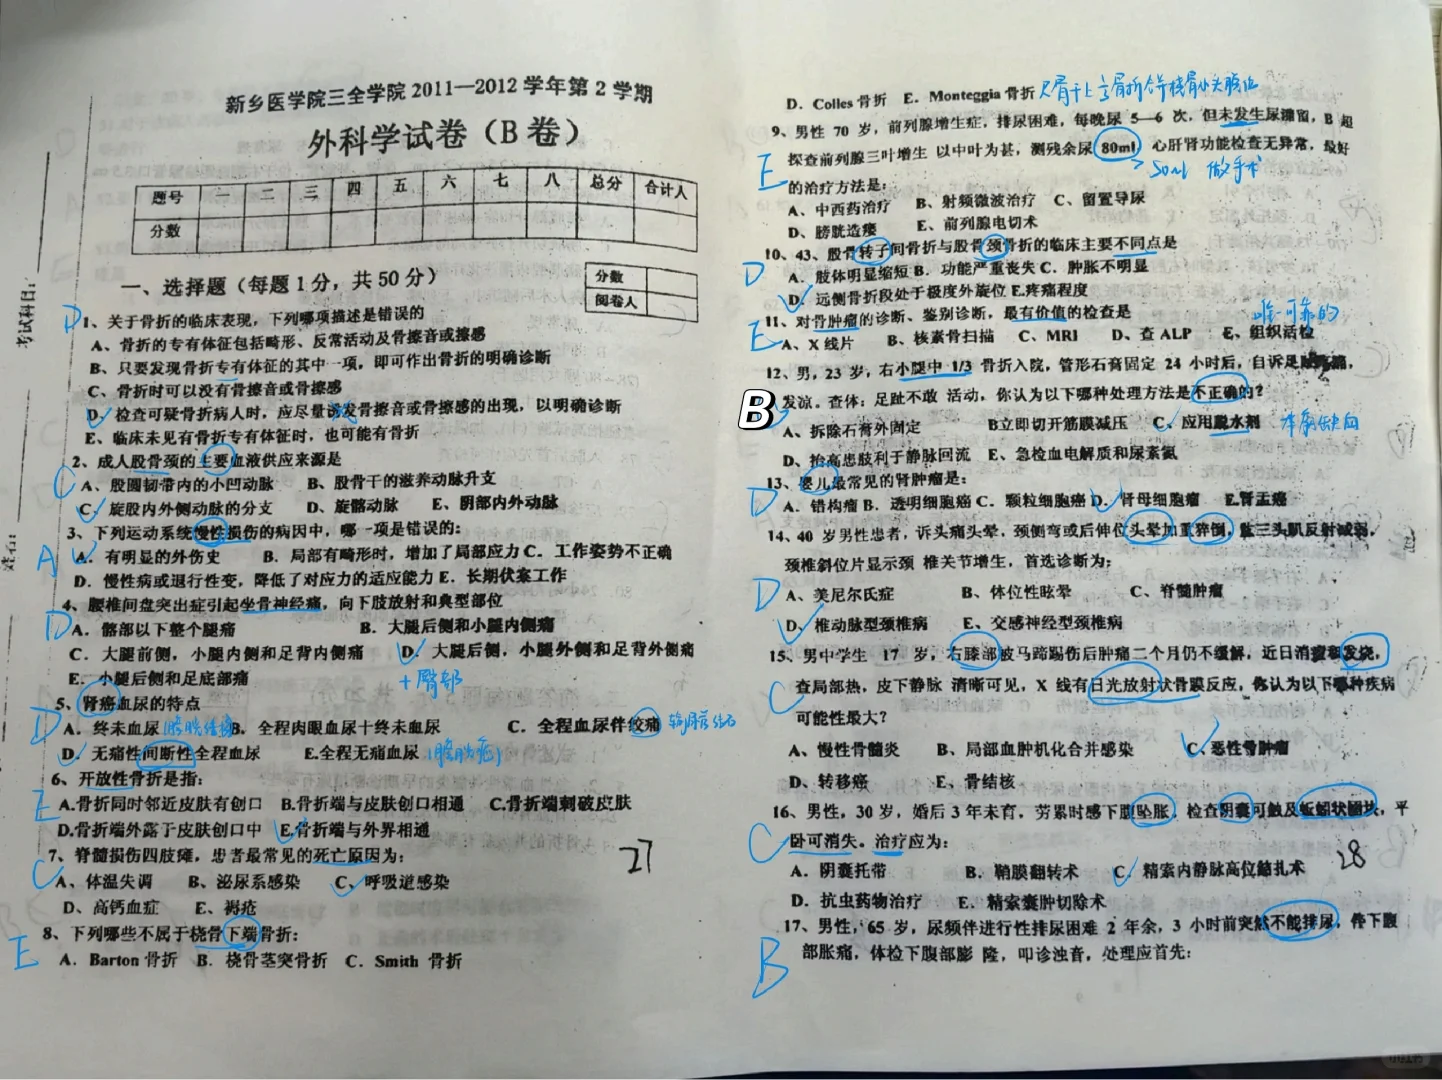 新乡医学院三全学院 2011—2012 学年第 2 学期
外科学试卷（B 卷）
题号 一 二 三 四 五 六 七 八 总分 合计人
分数
分数
阅卷人
考试科目：
姓名：
一、选择题（每题 1 分，共 50 分）
D
1、关于骨折的临床表现，下列哪项描述是错误的
A、骨折的专有体征包括畸形、反常活动及骨擦音或擦感
B、只要发现骨折专有体征的其中一项，即可作出骨折的明确诊断
C、骨折时可以没有骨擦音或骨擦感
D、检查可疑骨折病人时，应尽量诱发骨擦音或骨擦感的出现，以明确诊断
E、临床未见有骨折专有体征时，也可能有骨折
2、成人股骨颈的主要血液供应来源是
C A、股圆韧带内的小凹动脉 B、股骨干的滋养动脉升支
C、旋股内外侧动脉的分支 D、旋髂动脉 E、阴部内外动脉
3、下列运动系统慢性损伤的病因中，哪一项是错误的：
A A．有明显的外伤史 B．局部有畸形时，增加了局部应力 C．工作姿势不正确
D．慢性病或退行性变，降低了对应力的适应能力 E．长期伏案工作
4、腰椎间盘突出症引起坐骨神经痛，向下肢放射和典型部位
D A．髂部以下整个腿痛 B．大腿后侧和小腿内侧痛
C．大腿前侧，小腿内侧和足背内侧痛 D．大腿后侧，小腿外侧和足背外侧痛
E．小腿后侧和足底部痛 +臀部
5、肾癌血尿的特点
D A．终末血尿 B．全程肉眼血尿十终末血尿 C．全程血尿伴绞痛 输尿管结石
D．无痛性间断性全程血尿 E.全程无痛血尿（膀胱癌）
6、开放性骨折是指：
E A.骨折同时邻近皮肤有创口 B.骨折端与皮肤创口相通 C.骨折端刺破皮肤
D.骨折端外露于皮肤创口中 E.骨折端与外界相通
7、脊髓损伤四肢瘫，患者最常见的死亡原因为： 27
C A、体温失调 B、泌尿系感染 C、呼吸道感染
D、高钙血症 E、褥疮
8、下列哪些不属于桡骨下端骨折：
E A．Barton 骨折 B．桡骨茎突骨折 C．Smith 骨折
D．Colles 骨折 E．Monteggia 骨折 尺骨干上骨折合并桡骨小头脱位
9、男性 70 岁，前列腺增生症，排尿困难，每晚尿 5—6 次，但未发生尿潴留，B 超
探查前列腺三叶增生 以中叶为甚，测残余尿 80ml，心肝肾功能检查无异常，最好
E 的治疗方法是： 50ml 做手术
A、中西药治疗 B、射频微波治疗 C、留置导尿
D、膀胱造瘘 E、前列腺电切术
10、43、股骨转子间骨折与股骨颈骨折的临床主要不同点是
D A．肢体明显缩短 B．功能严重丧失 C．肿胀不明显
D．远侧骨折段处于极度外旋位 E.疼痛程度
11、对骨肿瘤的诊断、鉴别诊断，最有价值的检查是 唯一可靠的
E A、X 线片 B、核素骨扫描 C、MRI D、查 ALP E、组织活检
12、男，23 岁，右小腿中 1/3 骨折入院，管形石膏固定 24 小时后，自诉足
B 发凉。查体：足趾不敢 活动，你认为以下哪种处理方法是不正确的？
A、拆除石膏外固定 B立即切开筋膜减压 C、应用脱水剂
D、抬高患肢利于静脉回流 E、急检血电解质和尿素氮
13、婴儿最常见的肾肿瘤是：
D A．错构瘤 B．透明细胞癌 C．颗粒细胞癌 D．肾母细胞瘤 E.肾盂癌
14、40 岁男性患者，诉头痛头晕，颈侧弯或后伸位头晕加重猝倒，肱三头肌反射减弱，
颈椎斜位片显示颈 椎关节增生，首选诊断为：
D A、美尼尔氏症 B、体位性眩晕 C、脊髓肿瘤
D、椎动脉型颈椎病 E、交感神经型颈椎病
15、男中学生 17 岁，右膝部被马蹄踢伤后肿痛二个月仍不缓解，近日消瘦和发烧，
C 查局部热，皮下静脉 清晰可见，X 线有日光放射状骨膜反应，你认为以下哪种疾病
可能性最大？
A、慢性骨髓炎 B、局部血肿机化合并感染 C、恶性骨肿瘤
D、转移癌 E、骨结核
16、男性，30 岁，婚后 3 年未育，劳累时感下腹坠胀．检查阴囊可触及蚯蚓状团块，平
C 卧可消失。治疗应为： 28
A．阴囊托带 B．鞘膜翻转术 C．精索内静脉高位结扎术
D．抗虫药物治疗 E．精索囊肿切除术
17、男性，65 岁，尿频伴进行性排尿困难 2 年余，3 小时前突然不能排尿，伴下腹
B 部胀痛，体检下腹部膨 隆，叩诊浊音，处理应首先：